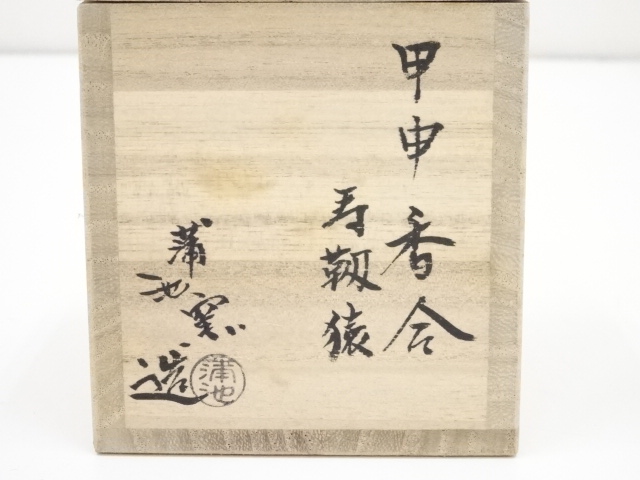 甲申 香合
寿靱猿
蒲池窯
造
蒲池